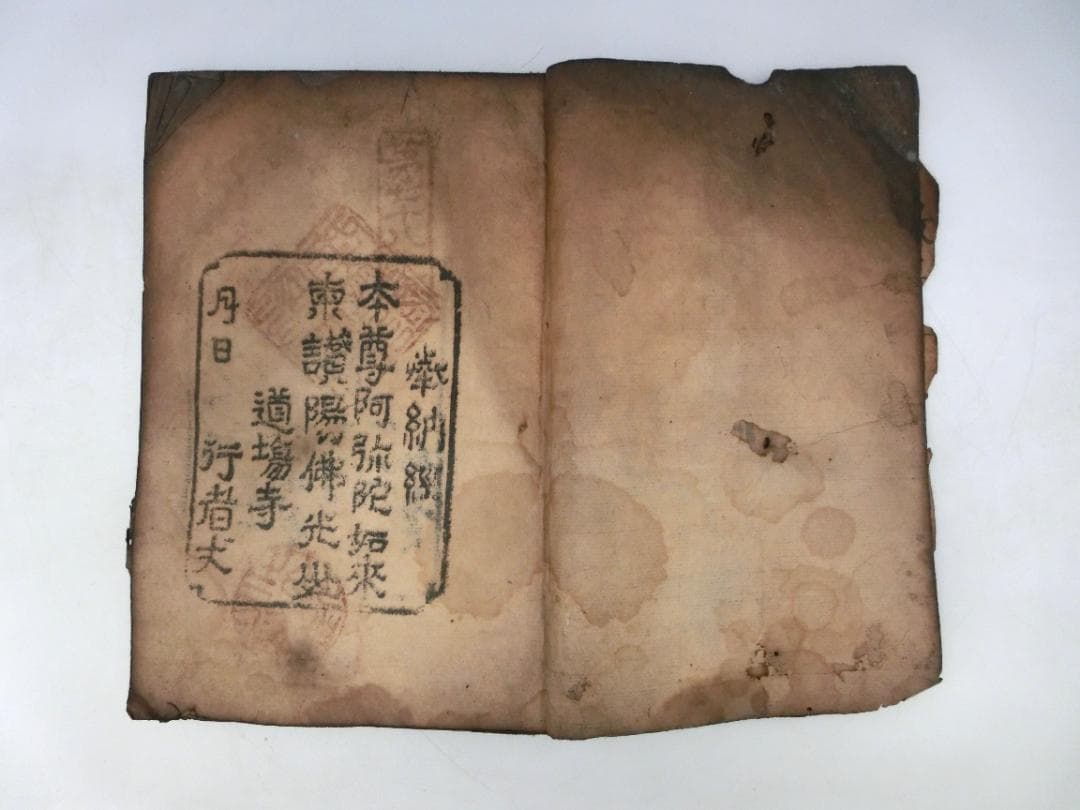 奉納經
本尊阿弥陀如來
東讃陽佛光山
道塲寺
月日 行者丈